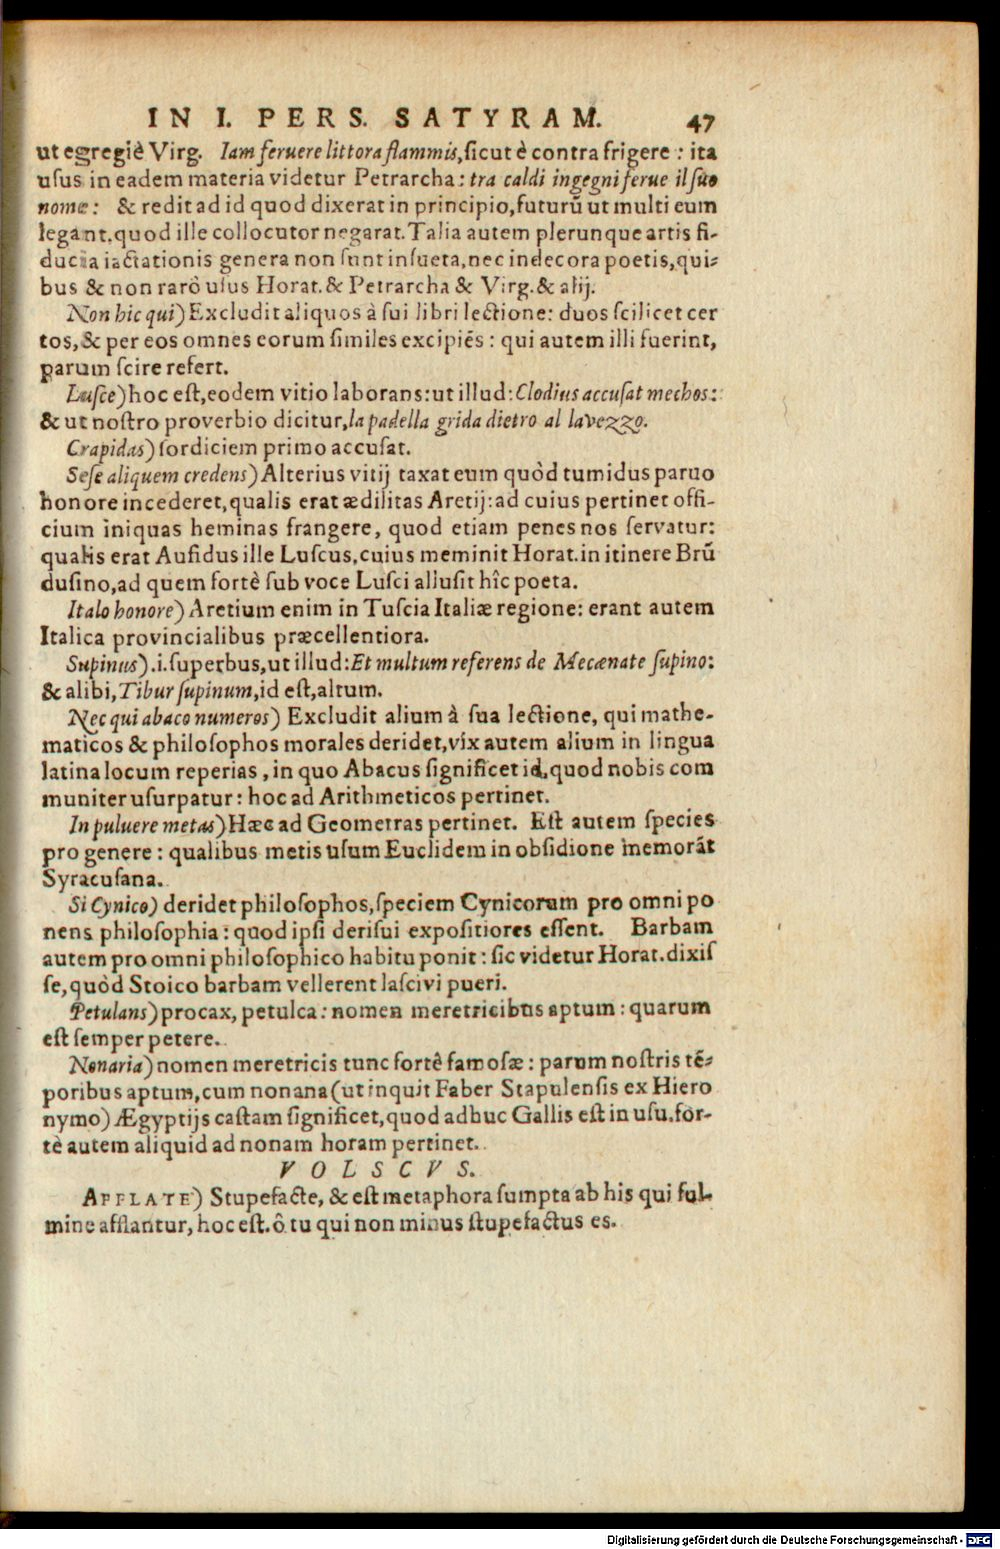 IN I. PERS. SATYRAM. 47
ut egregiè Virg. Iam feruere littora flammis, ſicut è contra frigere : ita
uſus in eadem materia videtur Petrarcha : tra caldi ingegni ferue il ſuo
nome : & redit ad id quod dixerat in principio, futurū ut multi eum
legant, quod ille collocutor negarat. Talia autem plerunque artis fi-
ducia iactationis genera non ſunt inſueta, nec indecora poetis, qui-
bus & non rarò uſus Horat. & Petrarcha & Virg. & alij.
Non hic qui) Excludit aliquos à ſui libri lectione: duos ſcilicet cer
tos, & per eos omnes eorum ſimiles excipiēs : qui autem illi fuerint,
parum ſcire refert.
Luſce) hoc eſt, eodem vitio laborans: ut illud: Clodius accuſat mechos:
& ut noſtro proverbio dicitur, la padella grida dietro al lavezzo.
Crapidas) ſordiciem primo accuſat.
Seſe aliquem credens) Alterius vitij taxat eum quòd tumidus paruo
honore incederet, qualis erat ædilitas Aretij: ad cuius pertinet offi-
cium iniquas heminas frangere, quod etiam penes nos ſervatur:
qualis erat Aufidus ille Luſcus, cuius meminit Horat. in itinere Brū
duſino, ad quem fortè ſub voce Luſci alluſit hîc poeta.
Italo honore) Aretium enim in Tuſcia Italiæ regione: erant autem
Italica provincialibus præcellentiora.
Supinus) .i. ſuperbus, ut illud: Et multum referens de Mecænate ſupino:
& alibi, Tibur ſupinum, id eſt, altum.
Nec qui abaco numeros) Excludit alium à ſua lectione, qui mathe-
maticos & philoſophos morales deridet, vix autem alium in lingua
latina locum reperias, in quo Abacus ſignificet id, quod nobis com
muniter uſurpatur: hoc ad Arithmeticos pertinet.
In puluere metas) Hæc ad Geometras pertinet. Eſt autem ſpecies
pro genere : qualibus metis uſum Euclidem in obſidione memorāt
Syracuſana.
Si Cynico) deridet philoſophos, ſpeciem Cynicorum pro omni po
nens philoſophia: quod ipſi deriſui expoſitiores eſſent. Barbam
autem pro omni philoſophico habitu ponit : ſic videtur Horat. dixiſ
ſe, quòd Stoico barbam vellerent laſcivi pueri.
Petulans) procax, petulca : nomen meretricibus aptum : quarum
eſt ſemper petere.
Nonaria) nomen meretricis tunc fortè famoſæ : parum noſtris tē-
poribus aptum, cum nonana (ut inquit Faber Stapulenſis ex Hiero
nymo) Ægyptijs caſtam ſignificet, quod adhuc Gallis eſt in uſu. for-
tè autem aliquid ad nonam horam pertinet.
VOLSCVS.
AFFLATE) Stupefacte, & eſt metaphora ſumpta ab his qui ful-
mine afflantur, hoc eſt. ô tu qui non minus ſtupefactus es.
Digitalisierung gefördert durch die Deutsche Forschungsgemeinschaft - DFG